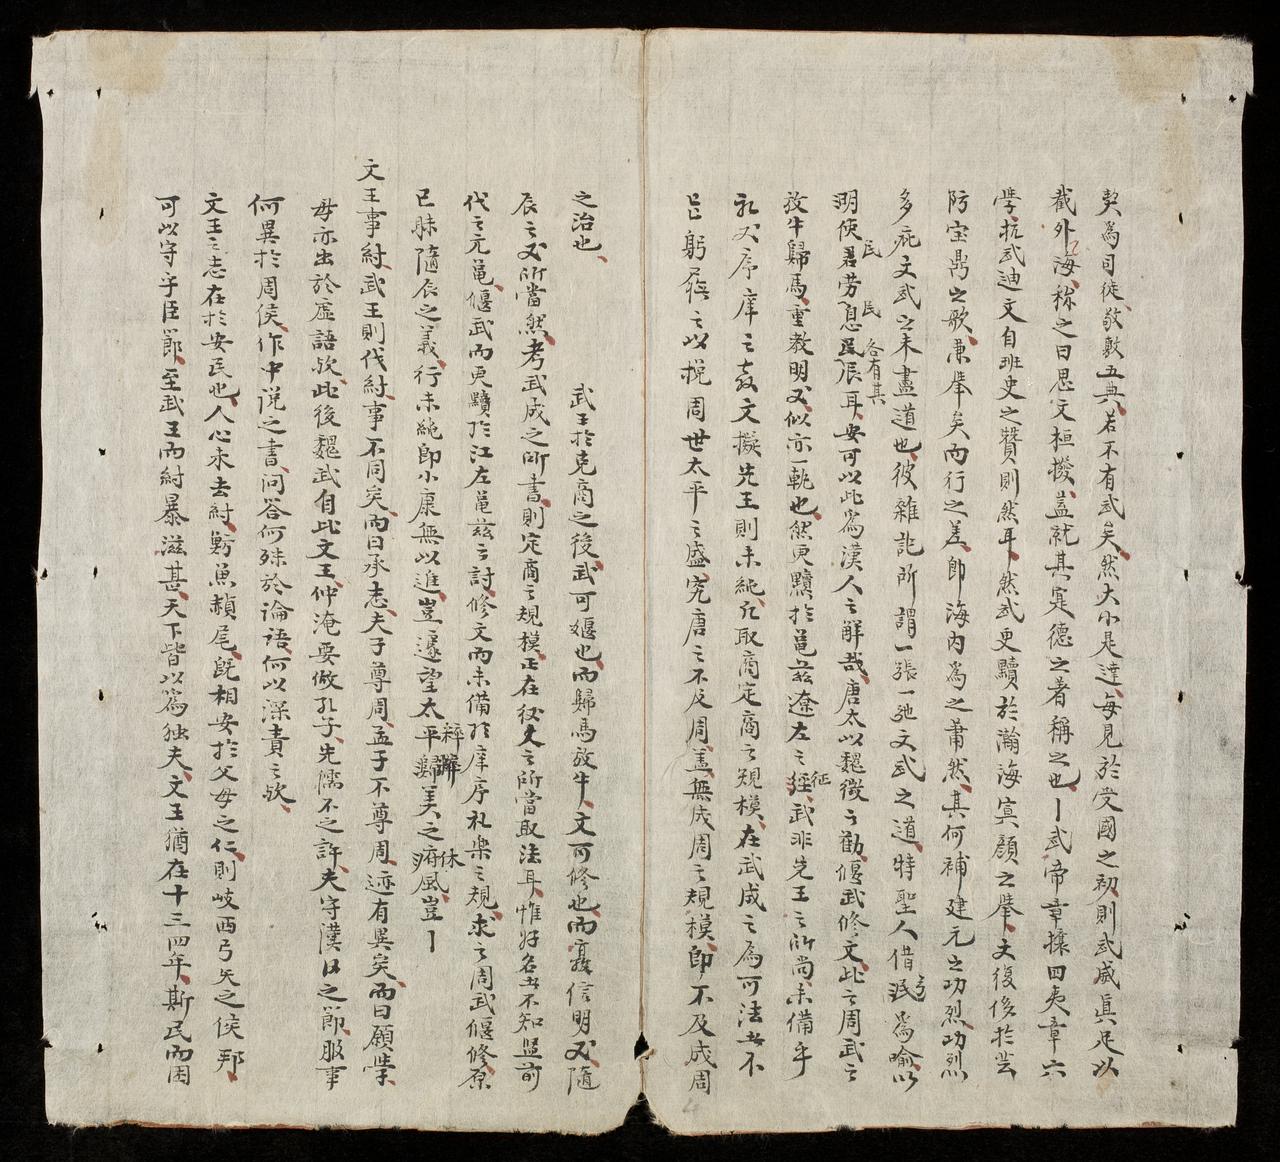 契為司徒敬敷五典若不有武矣然大小是達每見於受國之初則武威真足以
截外海称之曰思文桓撥盖就其寔德之著稱之也武帝章攘四夷章六
學抗武迪文自班史之贊則然耳然武更黷於瀚海寘顏之舉文復侈於芸
防宝鼎之歌兼舉矣而行之差即海内為之蕭然其何補建元之功烈功烈
多疵文武之未盡道也彼雜記所謂一張一弛文武之道特聖人借弓為喻以
明使民劳民息各有其辰耳安可以此為漢人之解哉唐太以魏徵之勸偃武修文此之周武之
放牛歸馬重教明义似亦一軌也然更黷於邑兹遼左之征武非先王之所尚未備乎
礼义序庠之教文擬先王則未純在取商定商之規模在武成之為可法者不
躬蹈之以挽周世太平之盛究唐之不及周盖無成周之規模即不及成周
之治也
武王於克商之後武可偃也而歸馬放牛文可修也而惇信明义隨
辰之义所當然考武成之所書則定商之規模正在後文之所當取法耳惟好名者不知监前
代之元黾偃武而更黷於江左黾兹之討修文而未備於庠序礼樂之規求之周武偃修原
已昧隨辰之義行未純即小康無以進豈遽望太平歸美之休風豈
文王事紂武王則伐紂事不同矣而曰承志夫子尊周孟子不尊周迹有異矣而曰願學
毋亦出於虚語欤此後魏武自比文王仲淹要倣孔子先儒不之許夫守漢臣之節服事
何異於周侯作中説之書问答何殊於論語何以深責之欤
文王之志在於安民也人心未去紂魴魚赬尾既相安於父母之仁則岐西弓矢之侯邦
可以守字臣節至武王而紂暴滋甚天下皆以為独夫文王猶在十三四年斯民而困